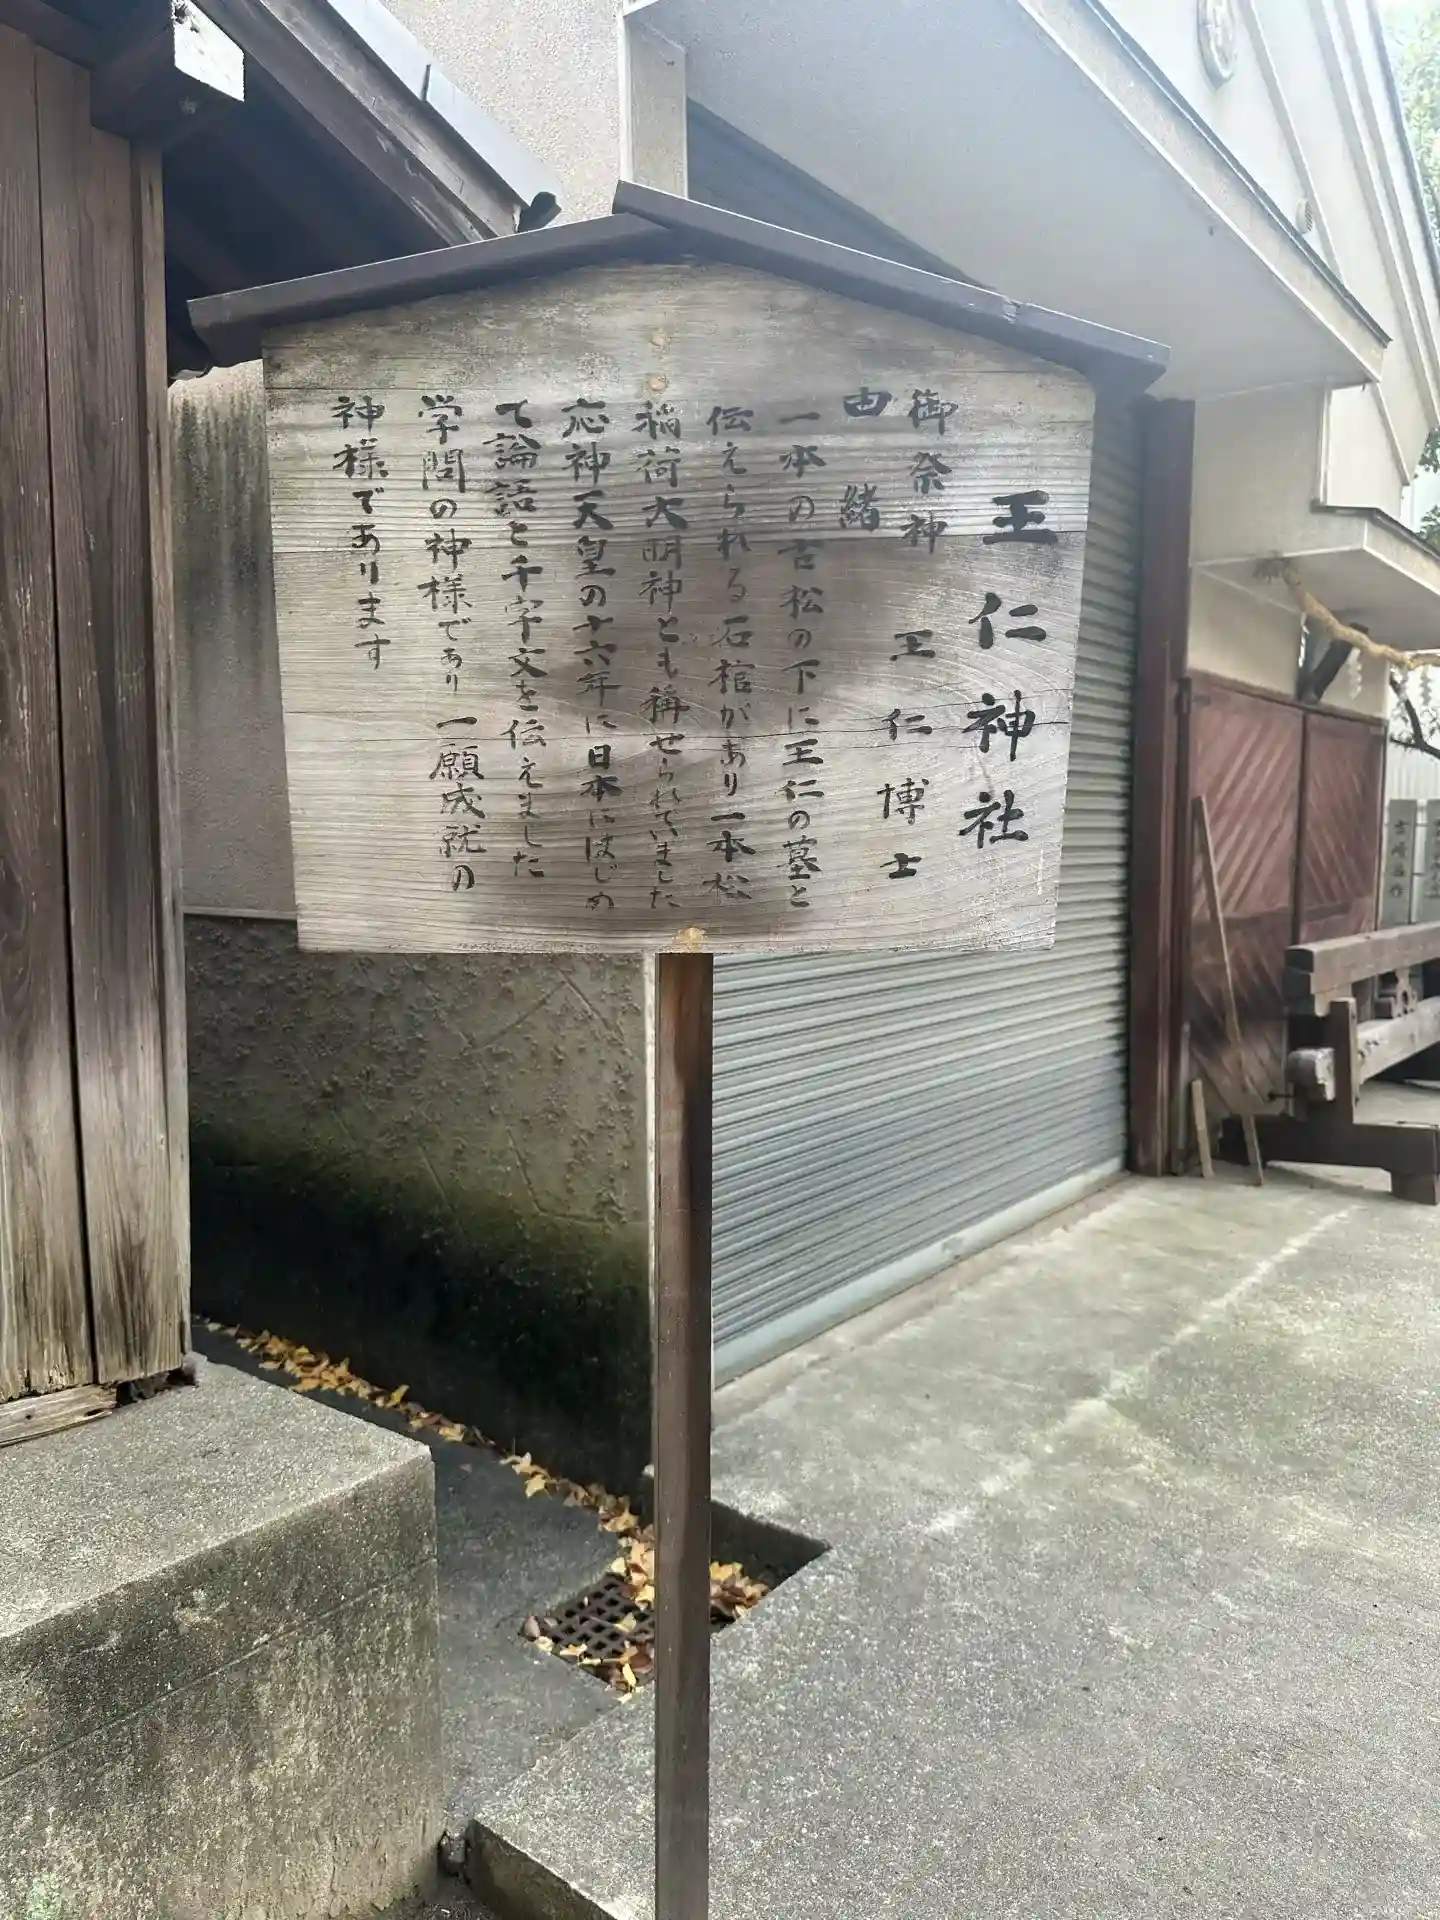 王仁神社
御祭神 王仁博士
由緒
一本の古松の下に王仁の墓と
伝えられる石棺があり一本松
稲荷大明神とも稱せられていました
応神天皇の十六年に日本にはじめ
て論語と千字文を伝えました
学問の神様であり一願成就の
神様であります